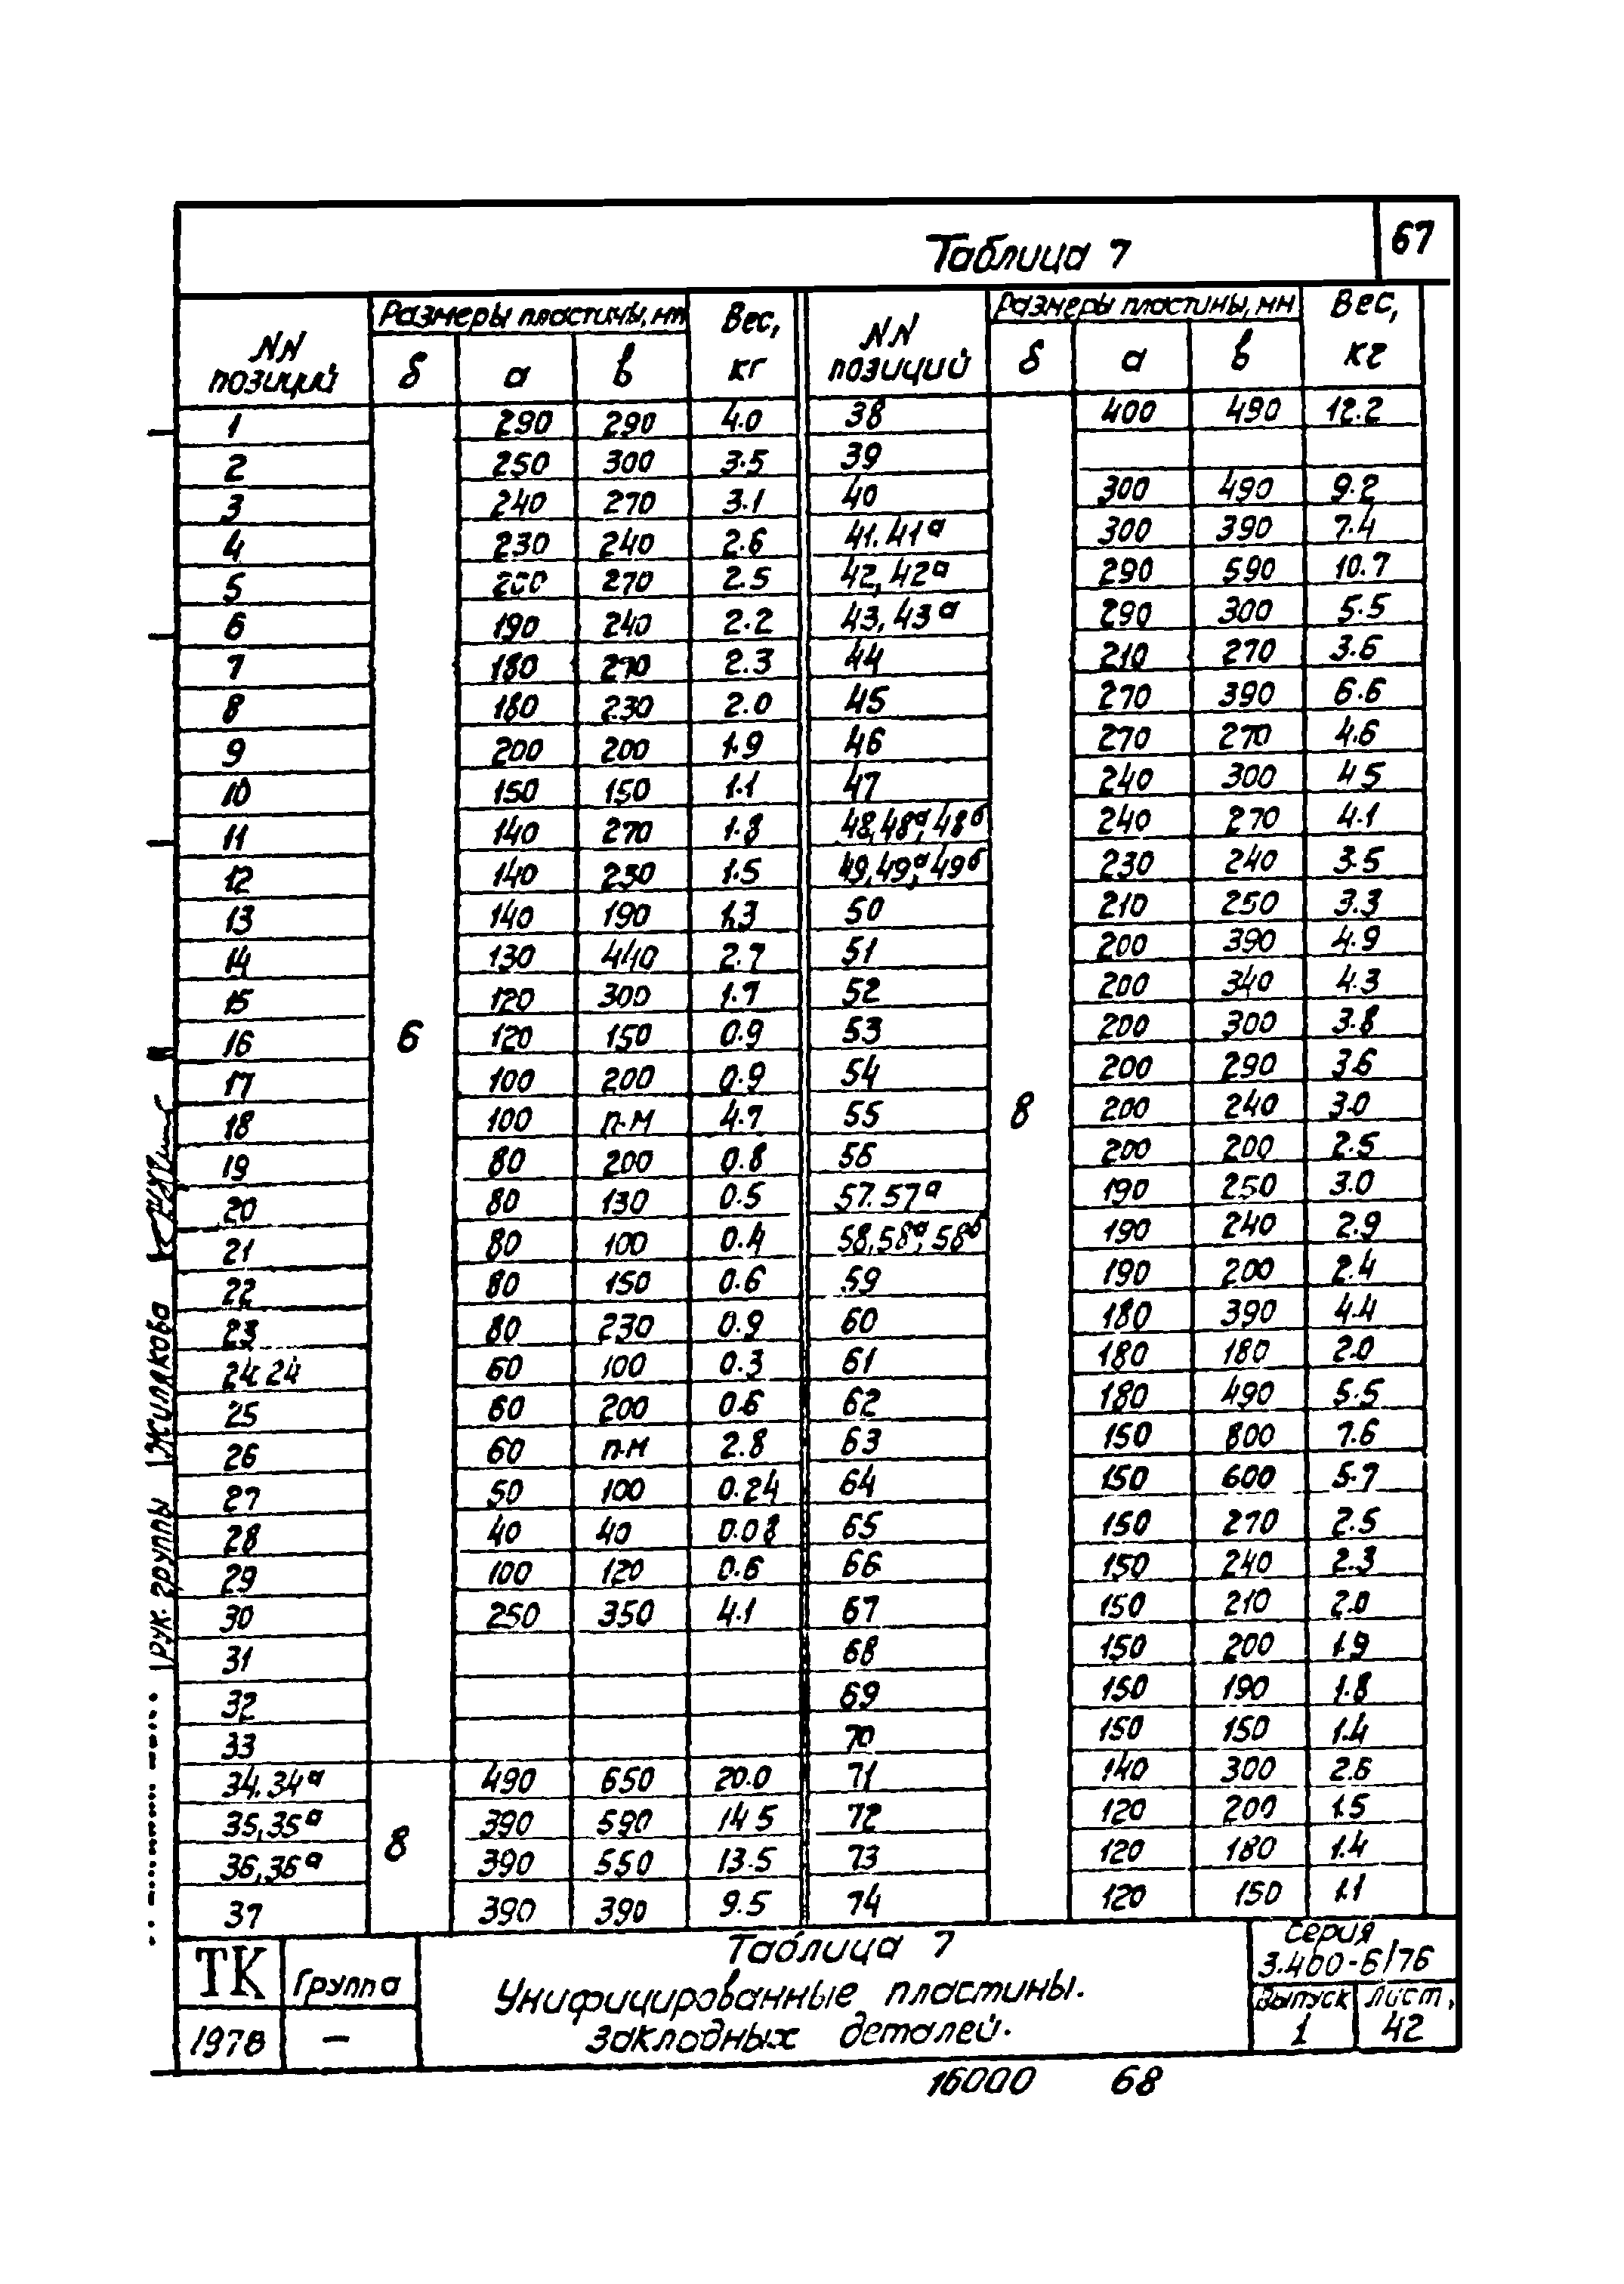 Таблица 7 67
NN позиций Размеры пластины, мм Вес, кг NN позиций Размеры пластины, мм Вес, кг
δ а в δ а в
1 290 290 4.0 38 400 490 12.2
2 250 300 3.5 39
3 240 270 3.1 40 300 490 9.2
4 230 240 2.6 41. 41а 300 390 7.4
5 200 270 2.5 42, 42а 290 590 10.7
6 190 240 2.2 43, 43а 290 300 5.5
7 180 270 2.3 44 210 270 3.6
8 180 230 2.0 45 270 390 6.6
9 200 200 1.9 46 270 270 4.6
10 150 150 1.1 47 240 300 4 5
11 140 270 1.8 48,48а,48б 240 270 4.1
12 140 230 1.5 49,49а,49б 230 240 3.5
13 140 190 1.3 50 210 250 3.3
14 130 440 2.7 51 200 390 4.9
15 120 300 1.7 52 200 340 4.3
16 6 120 150 0.9 53 200 300 3.8
17 100 200 0.9 54 200 290 3.6
18 100 п.м 4.7 55 8 200 240 3.0
19 80 200 0.8 56 200 200 2.5
20 80 130 0.5 57. 57а 190 250 3.0
21 80 100 0.4 58,58а,58б 190 240 2.9
22 80 150 0.6 59 190 200 2.4
23 80 230 0.9 60 180 390 4.4
24 24 60 100 0.3 61 180 180 2.0
25 60 200 0.6 62 180 490 5.5
26 60 п.м 2.8 63 150 800 7.6
27 50 100 0.24 64 150 600 5.7
28 40 40 0.08 65 150 270 2.5
29 100 120 0.6 66 150 240 2.3
30 250 350 4.1 67 150 210 2.0
31 68 150 200 1.9
32 69 150 190 1.8
33 70 150 150 1.4
34. 34а 490 650 20.0 71 140 300 2.6
35, 35а 8 390 590 14 5 72 120 200 1.5
36, 36а 390 550 13.5 73 120 180 1.4
37 390 390 9.5 74 120 150 1.1
ТК Группа
1978 —
Таблица 7
Унифицированные пластины.
закладных деталей.
Серия
3.400-6/76
Выпуск Лист,
1 42
16000 68
рук. группы Жиллкова